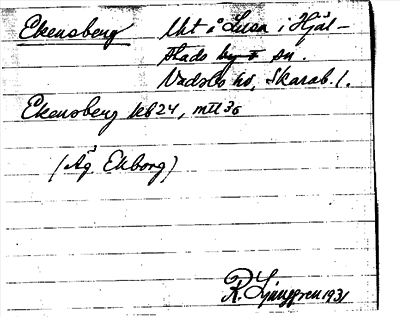 Ekensberg Uht å Lusa i Hjäl-
stads by i sn.
Vadsbo hd, Skarab. l.
Ekensberg kb 24, mtl 36
(Äg. Ekborg)
R. Ljunggren 1931